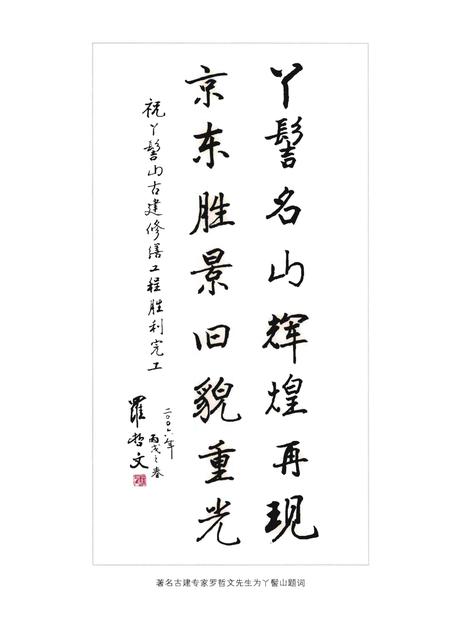 丫髻名山辉煌再现
京东胜景旧貌重光
祝丫髻山古建修缮工程胜利完工
二〇〇六年
丙戌之春
羅哲文
著名古建专家罗哲文先生为丫髻山题词